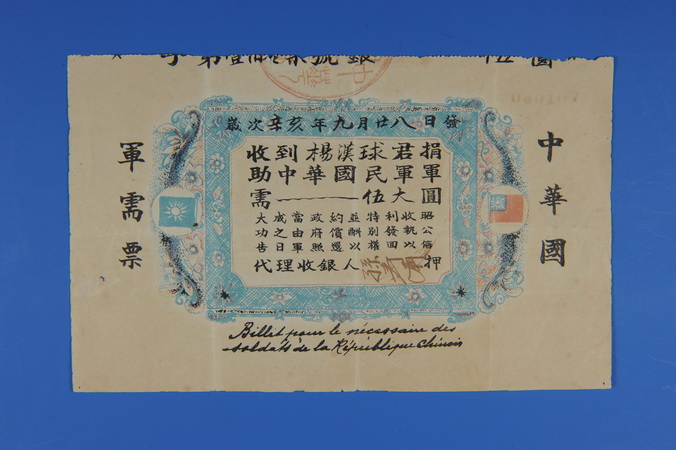 歲次辛亥年九月廿八日發
收到楊漢球君捐
助中華國民軍軍
需————伍大圓
大功告
成之日
當由軍
政府照
約償還
並酬以
特別權
利發回
收執以
昭公信
代理收銀人 押
軍需票
中華國
Billet pour le nécessaire des
soldats de la République Chinois